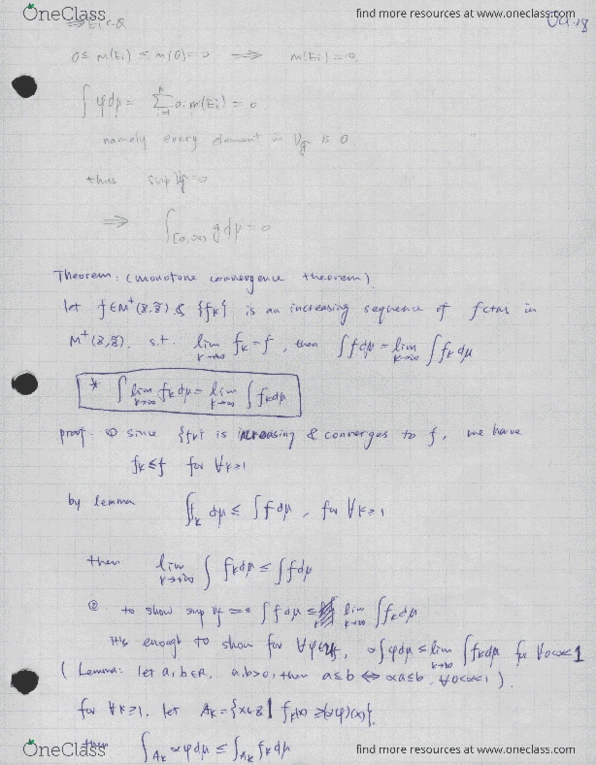 OneClass find more resources at www.oneclass.com
⇒ Ei ⊂ Q
0 ≤ m(Ei) ≤ m(Q) = 0 ⇒ m(Ei) = 0.
∫ φdμ = Σ ai m(Ei) = 0
namely every element in Vg is 0
thus sup Vg = 0
⇒ ∫[0,∞) g dμ = 0
Theorem: (monotone convergence theorem)
let f∈M⁺(X,𝒳) & {fk} is an increasing sequence of fctns in
M⁺(X,𝒳). s.t. lim k→∞ fk = f, then ∫fdμ = lim k→∞ ∫fkdμ
* ∫ lim k→∞ fk dμ = lim k→∞ ∫ fkdμ
proof. ① since {fk} is increasing & converges to f, we have
fk ≤ f for ∀k≥1
by lemma ∫fk dμ ≤ ∫fdμ, for ∀k≥1
then lim k→∞ ∫ fkdμ ≤ ∫fdμ
② to show sup Vf = ∫fdμ ≤ lim k→∞ ∫fkdμ
It's enough to show for ∀φ∈Vf, α∫φdμ ≤ lim k→∞ ∫fkdμ for ∀0<α<1
(Lemma: let a,b∈R, a,b>0, then a≤b ⇔ αa≤b, ∀0<α<1).
for ∀k≥1, let Ak = {x∈X | fk(x) ≥ (αφ)(x)},
then ∫Ak αφdμ ≤ ∫Ak fkdμ
OneClass find more resources at www.oneclass.com